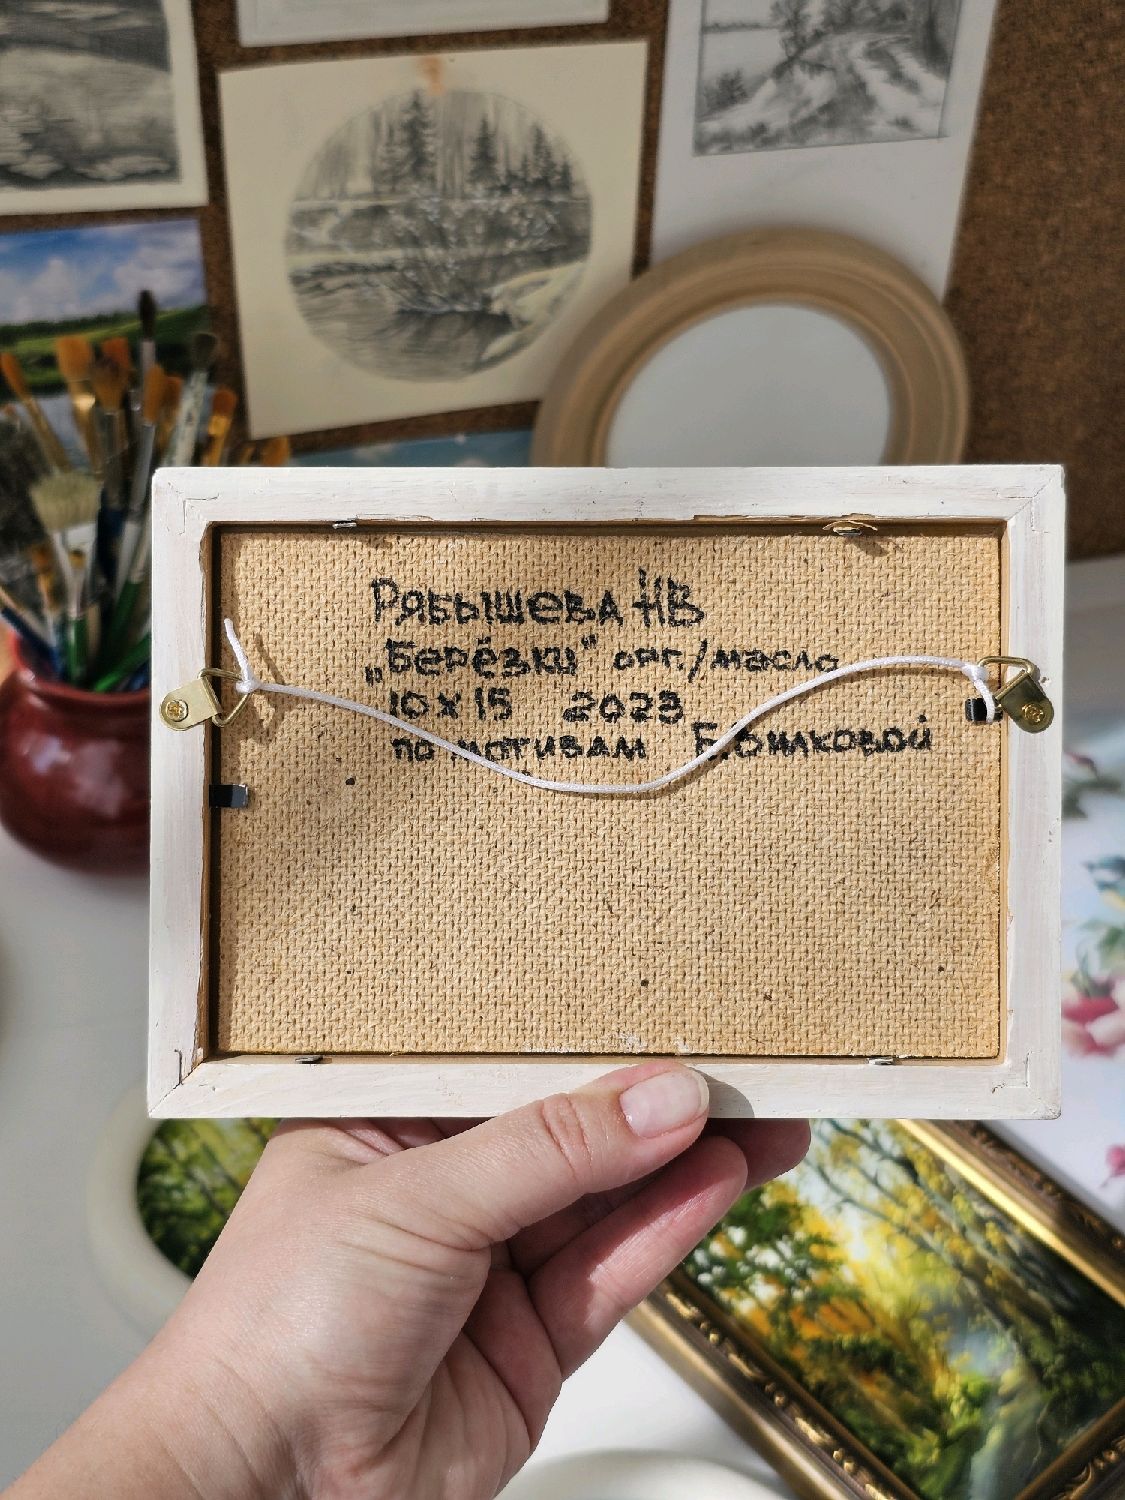 Рябышева НВ
„Берёзки" орг./масло
10х15 2023
по мотивам Е.Вилковой